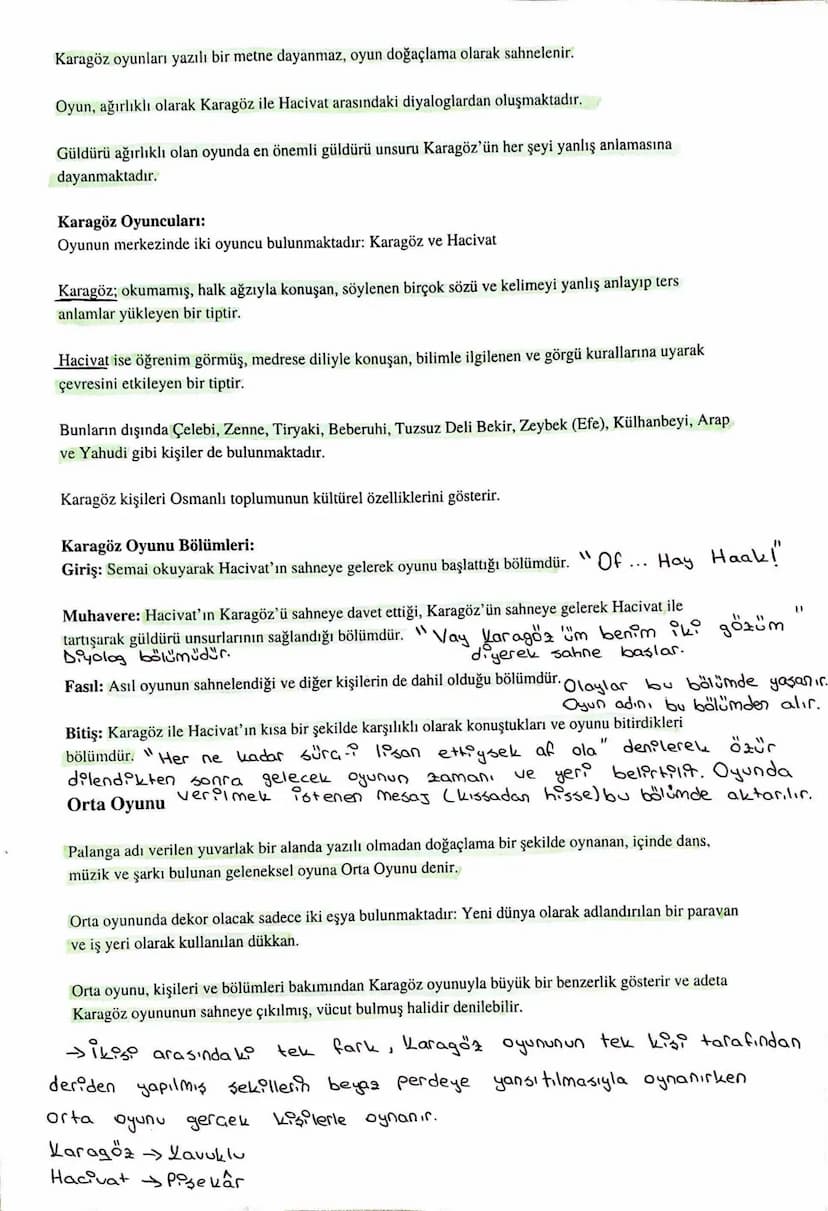 Karagöz oyunları yazılı bir metne dayanmaz, oyun doğaçlama olarak sahnelenir.
Oyun, ağırlıklı olarak Karagöz ile Hacivat arasındaki diyaloglardan oluşmaktadır.
Güldürü ağırlıklı olan oyunda en önemli güldürü unsuru Karagöz'ün her şeyi yanlış anlamasına
dayanmaktadır.
Karagöz Oyuncuları:
Oyunun merkezinde iki oyuncu bulunmaktadır: Karagöz ve Hacivat
Karagöz; okumamış, halk ağzıyla konuşan, söylenen birçok sözü ve kelimeyi yanlış anlayıp ters
anlamlar yükleyen bir tiptir.
Hacivat ise öğrenim görmüş, medrese diliyle konuşan, bilimle ilgilenen ve görgü kurallarına uyarak
çevresini etkileyen bir tiptir.
Bunların dışında Çelebi, Zenne, Tiryaki, Beberuhi, Tuzsuz Deli Bekir, Zeybek (Efe), Külhanbeyi, Arap
ve Yahudi gibi kişiler de bulunmaktadır.
Karagöz kişileri Osmanlı toplumunun kültürel özelliklerini gösterir.
Karagöz Oyunu Bölümleri:
Giriş: Semai okuyarak Hacivat'ın sahneye gelerek oyunu başlattığı bölümdür. "Of ... Hay Haak!"
Muhavere: Hacivat'ın Karagöz'ü sahneye davet ettiği, Karagöz'ün sahneye gelerek Hacivat ile
tartışarak güldürü unsurlarının sağlandığı bölümdür. "Vay Karagöz'üm benim iki gözüm"
Diyolog bölümüdür. diyerek sahne başlar.
Fasıl: Asıl oyunun sahnelendiği ve diğer kişilerin de dahil olduğu bölümdür. Olaylar bu bölümde yaşanır.
Oyun adını bu bölümden alır.
Bitiş: Karagöz ile Hacivat'ın kısa bir şekilde karşılıklı olarak konuştukları ve oyunu bitirdikleri
bölümdür. "Her ne kadar sürç-i lisan ettiysek af ola" denilerek özür
dilendikten sonra gelecek oyunun zamanı ve yeri belirtilir. Oyunda
verilmek istenen mesaj (kıssadan hisse) bu bölümde aktarılır.
Orta Oyunu
Palanga adı verilen yuvarlak bir alanda yazılı olmadan doğaçlama bir şekilde oynanan, içinde dans,
müzik ve şarkı bulunan geleneksel oyuna Orta Oyunu denir.
Orta oyununda dekor olacak sadece iki eşya bulunmaktadır: Yeni dünya olarak adlandırılan bir paravan
ve iş yeri olarak kullanılan dükkan.
Orta oyunu, kişileri ve bölümleri bakımından Karagöz oyunuyla büyük bir benzerlik gösterir ve adeta
Karagöz oyununun sahneye çıkılmış, vücut bulmuş halidir denilebilir.
→ İkisi arasındaki tek fark, Karagöz oyununun tek kişi tarafından
deriden yapılmış şekillerin beyaz perdeye yansıtılmasıyla oynanırken
orta oyunu gerçek kişilerle oynanır.
Karagöz → Kavuklu
Hacivat → Pişekâr